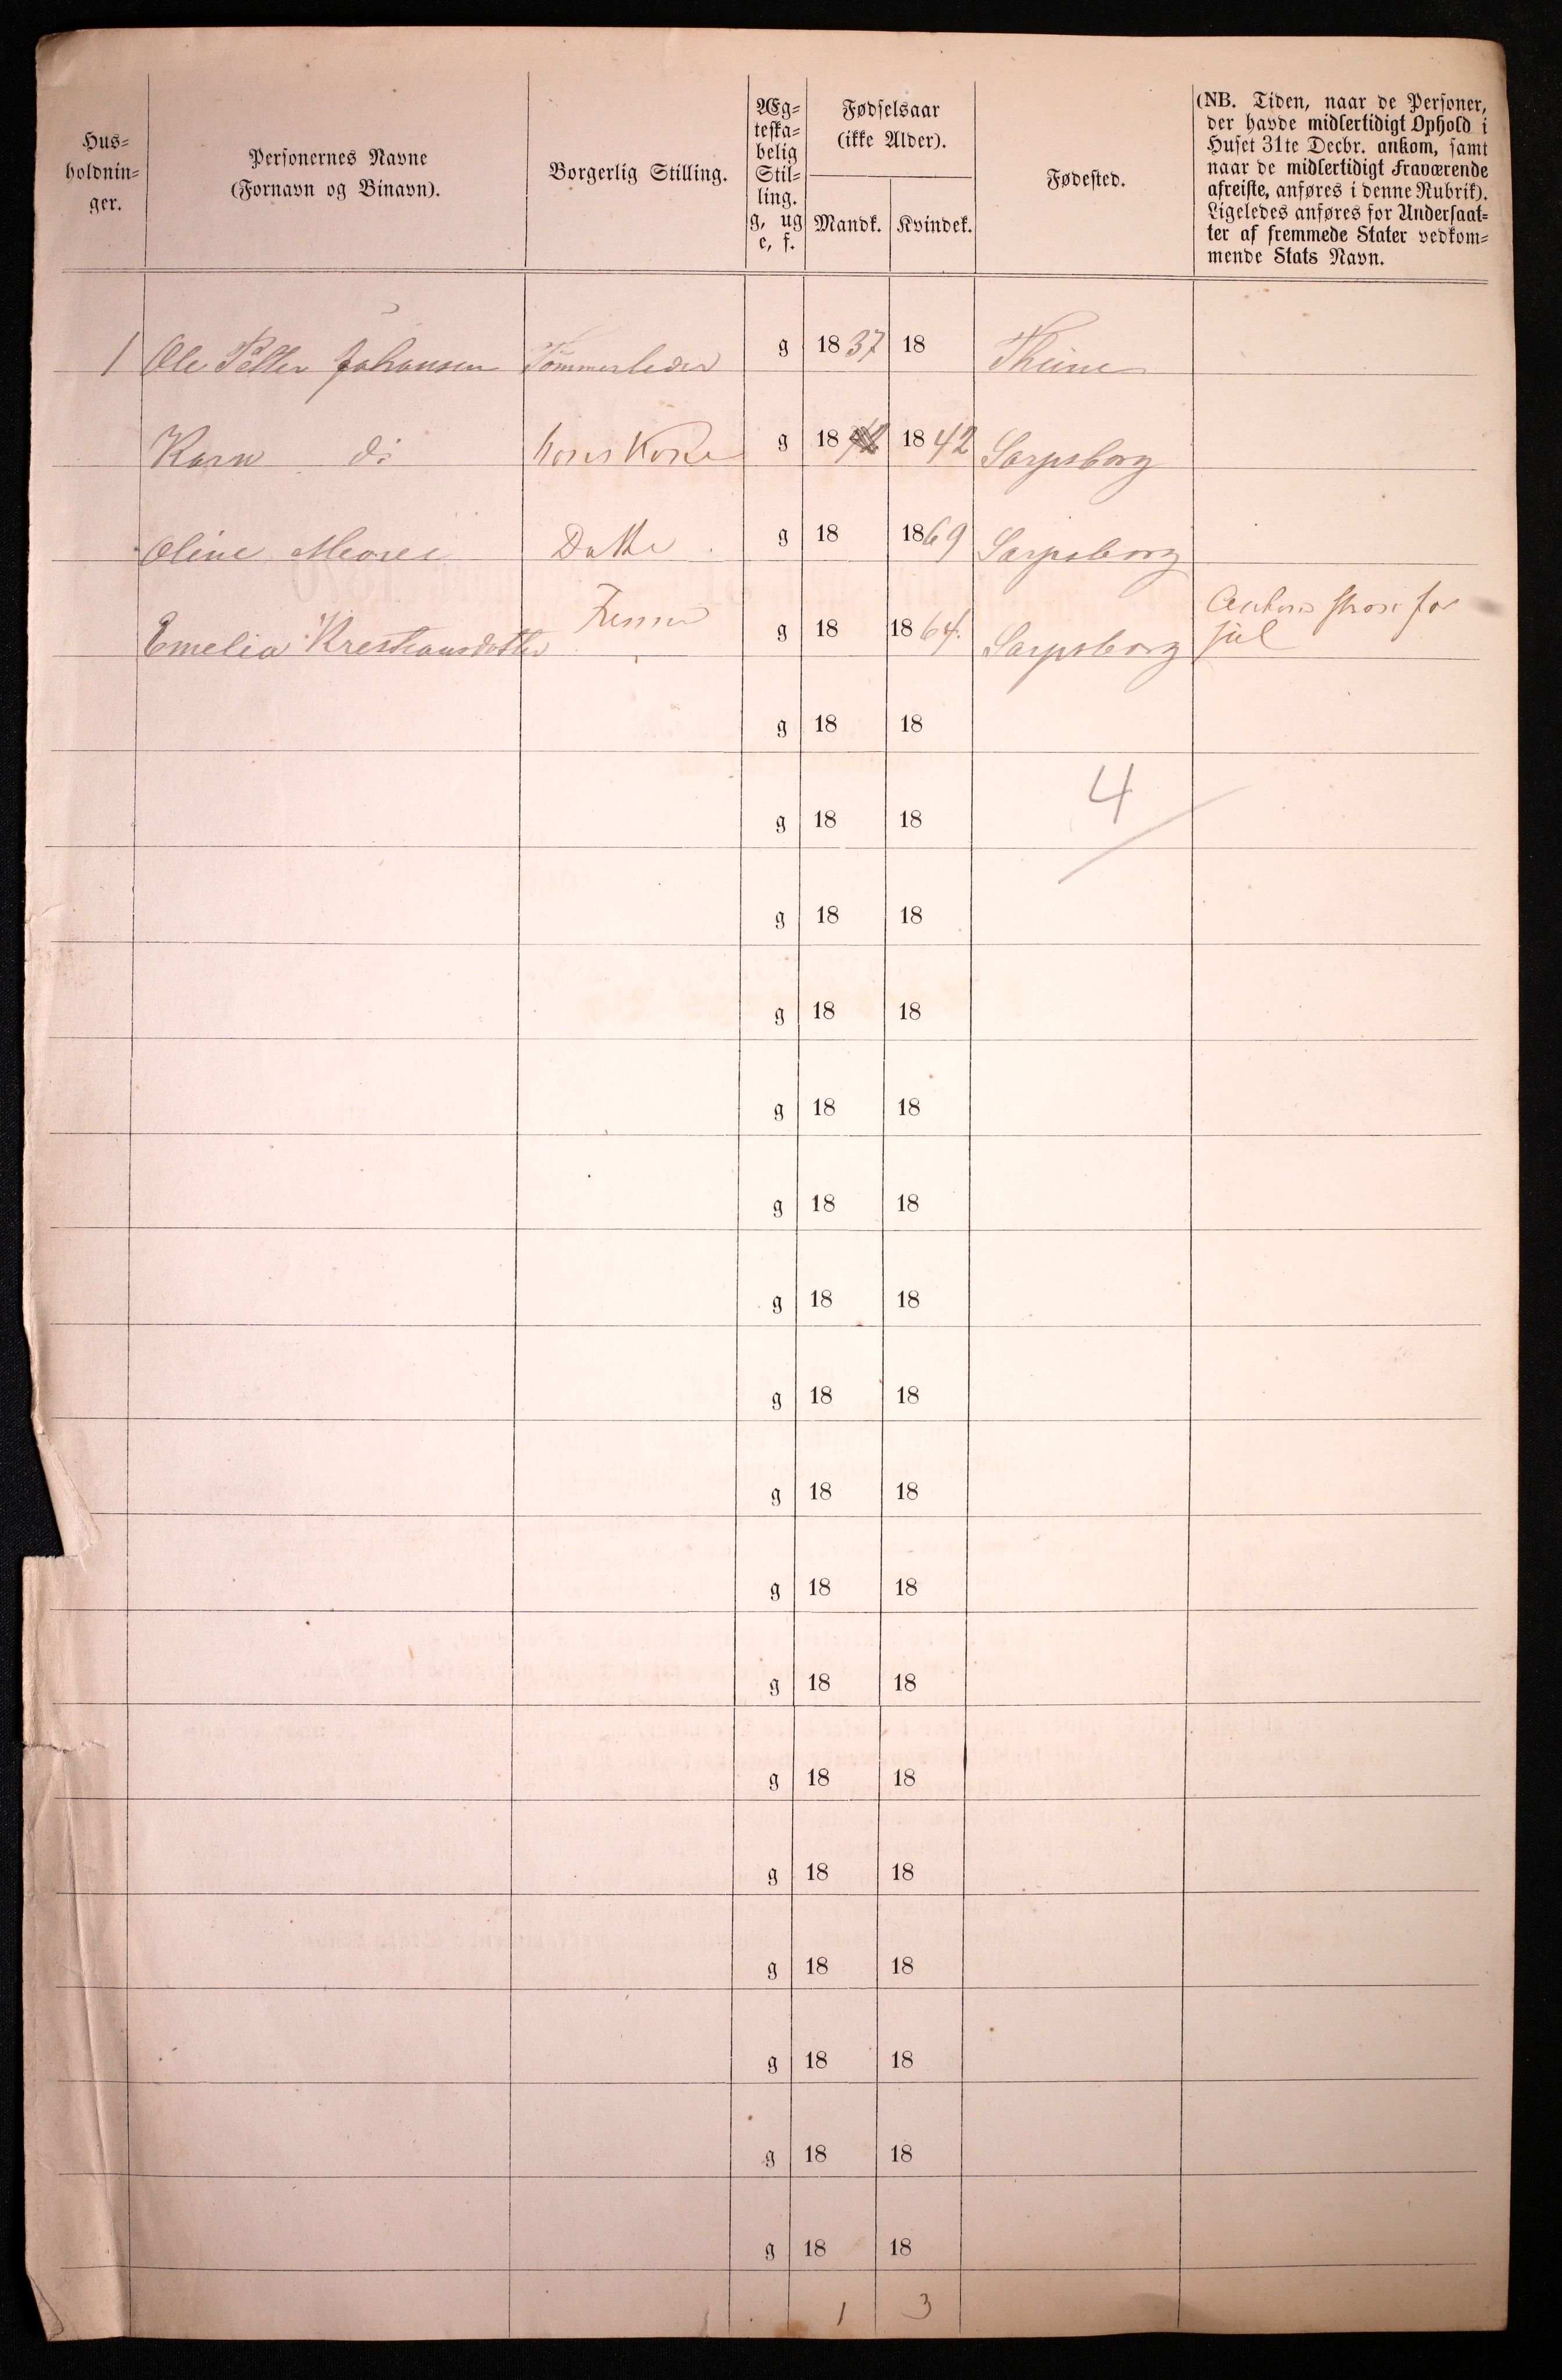 Hus-
holdnin-
ger.
Personernes Navne
(Fornavn og Binavn).
Borgerlig Stilling.
Æg-
teska-
belig
Stil-
ling.
g, ug
e, f.
Fødselsaar
(ikke Alder).
Mandk. Kvindek.
Fødested.
(NB. Tiden, naar de Personer,
der havde midlertidigt Ophold i
Huset 31te Decbr. ankom, samt
naar de midlertidigt Fraværende
afreiste, anføres i denne Rubrik).
Ligeledes anføres for Undersaat-
ter af fremmede Stater vedkom-
mende Stats Navn.
1 Ole Petter Johansen Tømmerleder g 1837 18 Thune
Karn do g 18 1842 Sarpsborg
Oline Datter g 18 1869 Sarpsborg
Emelia Krestiansdatter g 18 1864. Sarpsborg for
jul
g 18 18
4
g 18 18
g 18 18
g 18 18
g 18 18
g 18 18
g 18 18
g 18 18
g 18 18
g 18 18
g 18 18
g 18 18
g 18 18
g 18 18
g 18 18
g 18 18
g 18 18
1 3